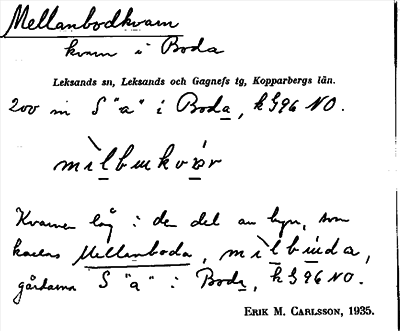 Mellanbodkvarn
kvarn i Boda
Leksands sn, Leksands och Gagnefs tg, Kopparbergs län.
200 m S "a" i Boda, k G96 NO.
Kvarnen låg i den del av byn, som
kallas Mellanboda,
gårdarna S "a" i Boda, k G96 NO.
ERIK M. CARLSSON, 1935.